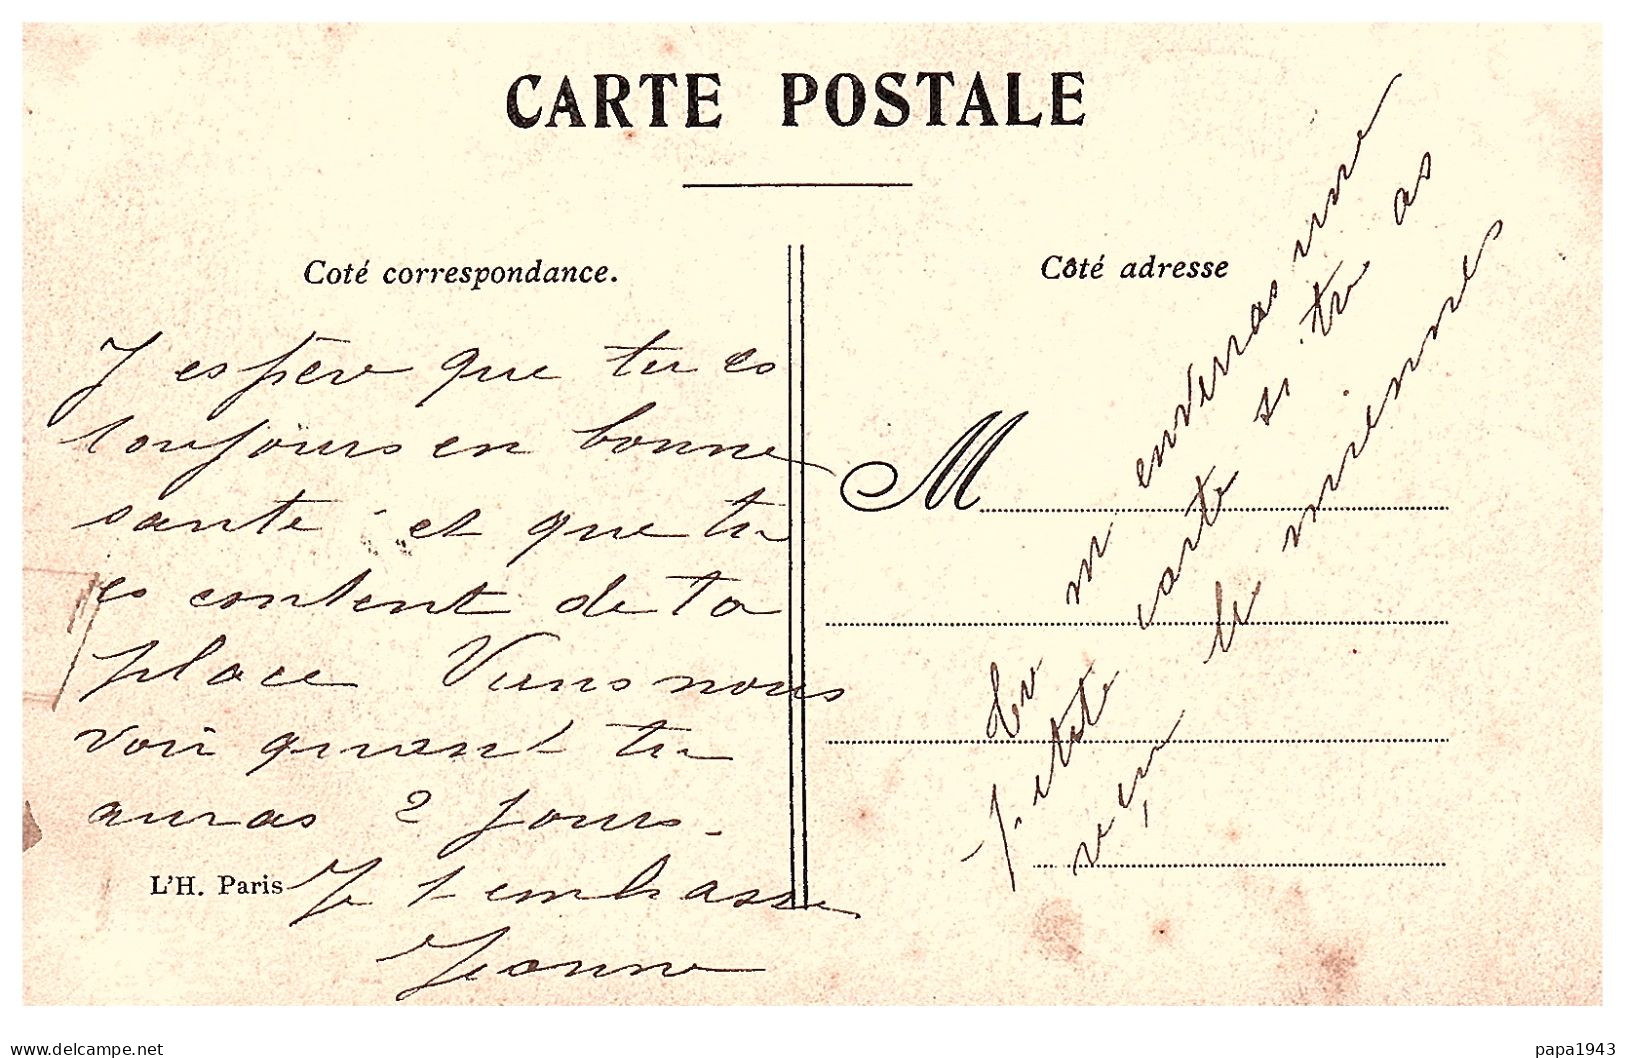 CARTE POSTALE
Coté correspondance.
Côté adresse
J espère que tu es
toujours en bonne
sante et que tu
es content de ta
place Viens nous
voir quant tu
auras 2 jours.
Je t embrasse
Jeanne
L'H. Paris
M
Tu m enverras une
petite carte si tu as
reçu la mienne
www.delcampe.net
papa1943